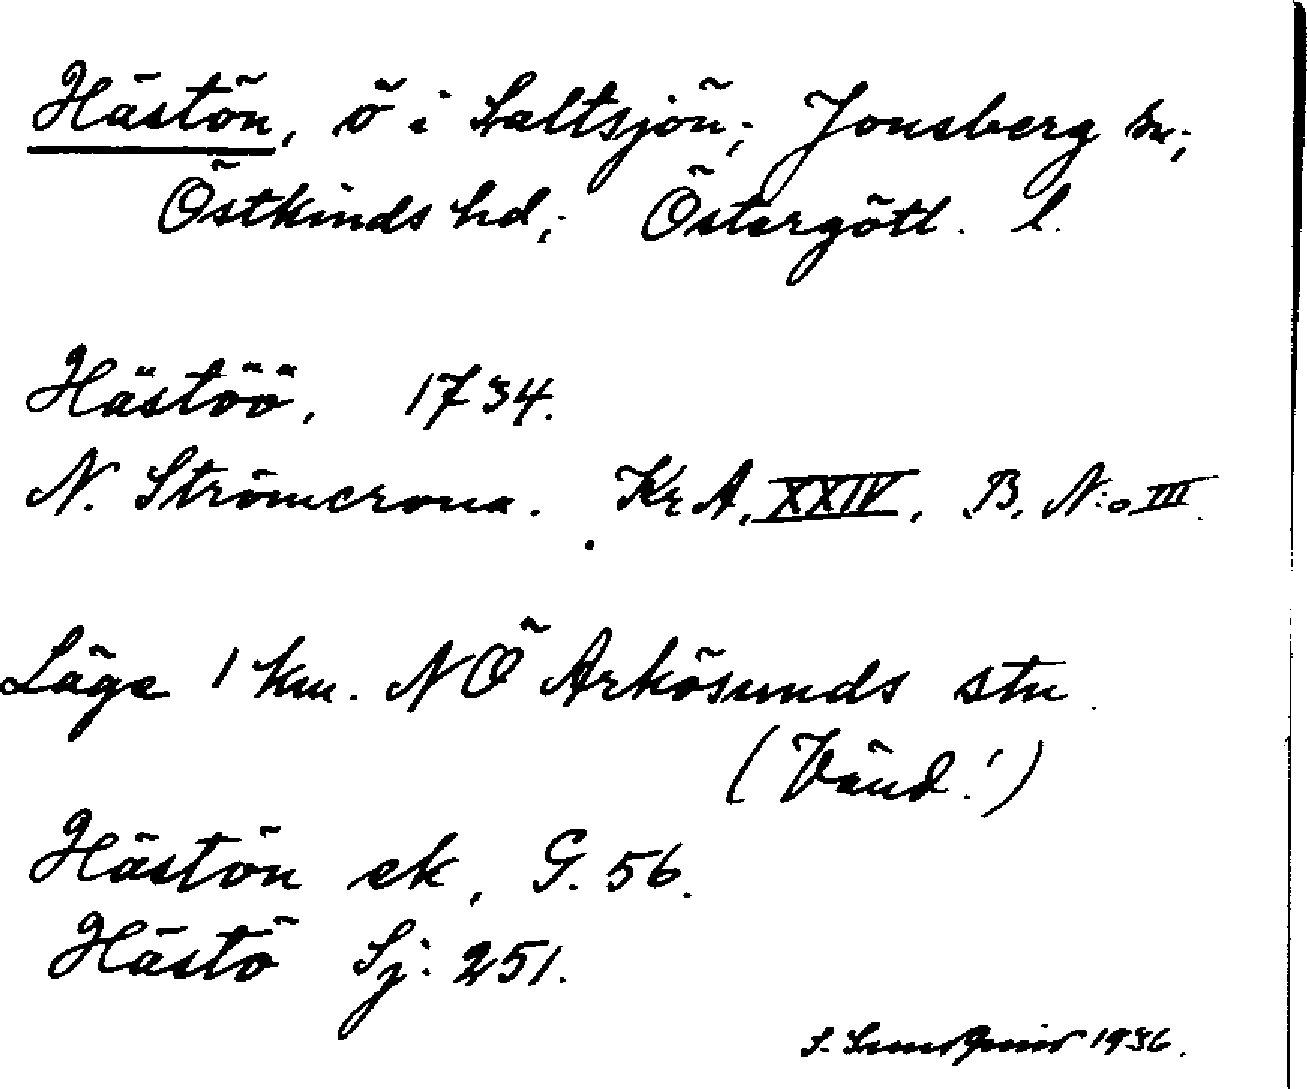 Hästön, ö i Saltsjön; Jonsberg sn;
Östkinds hd; Östergötl. l.
Hästöö, 1734.
N. Strömcrona. Kr A, XXIV, B, N:o III.
Läge 1 km. NÖ Arkösunds stn.
(Vänd!)
Hästön ek, G. 56.
Hästö Sj: 251.
S. 1936.